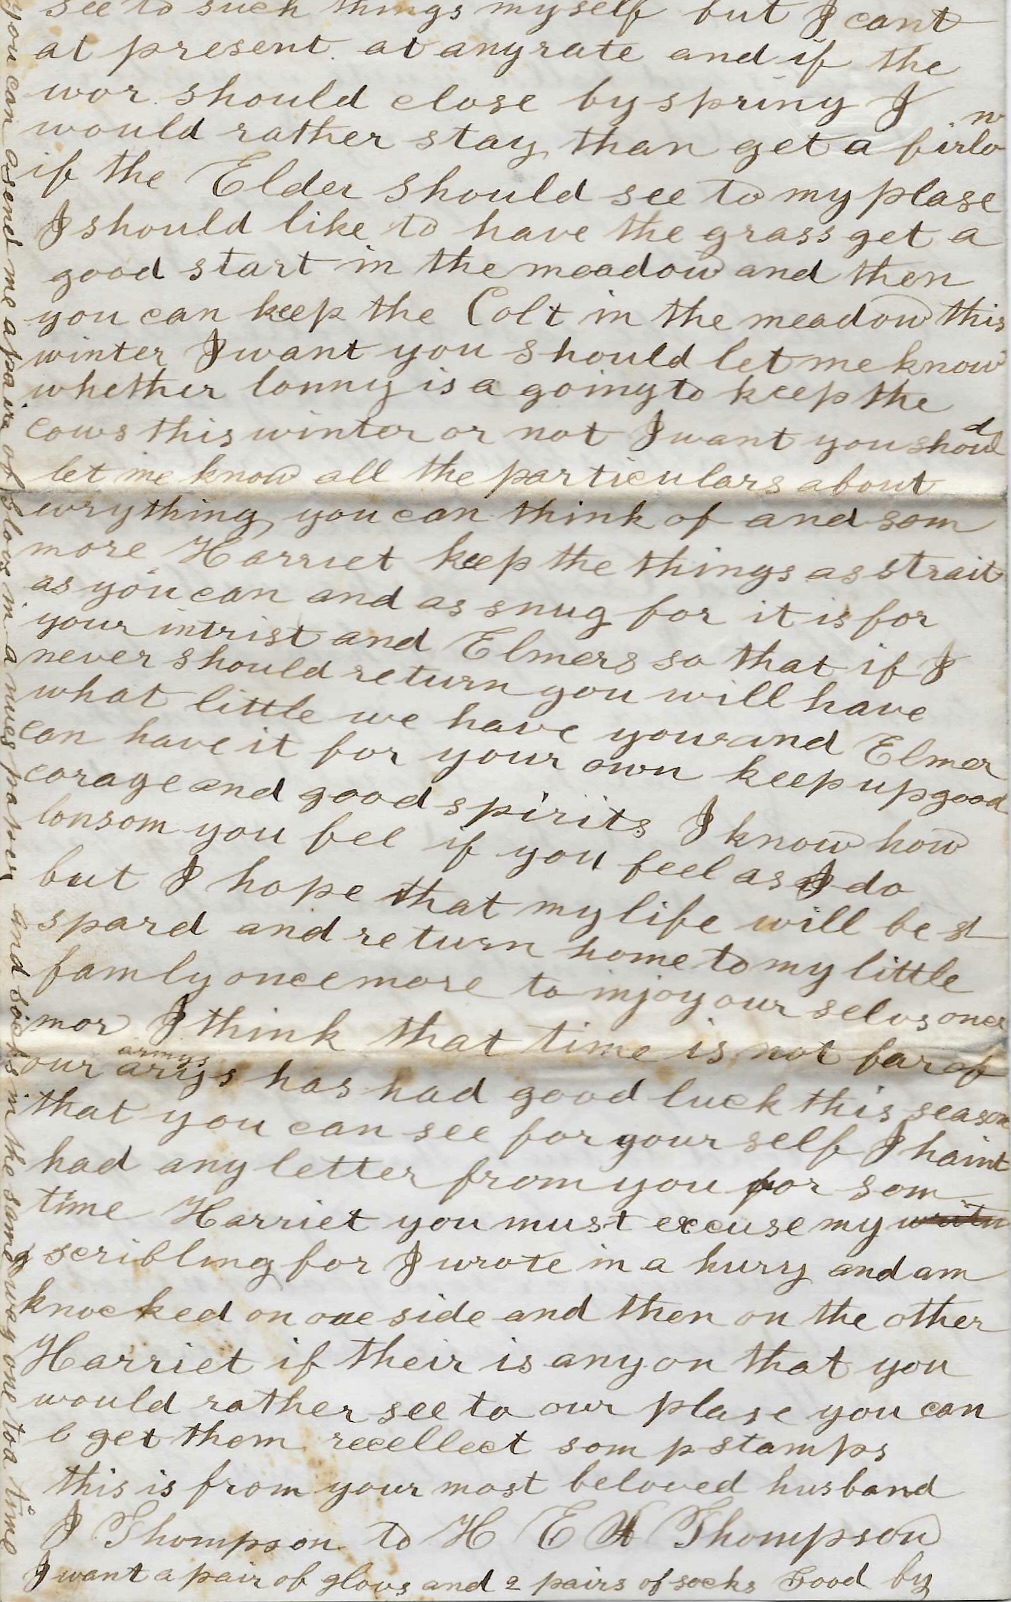 see to such things myself but I cant
at present at anyrate and if the
wor should close by spring I
would rather stay than get a firlow
if the Elder should see to my plase
I should like to have the grass get a
good start in the meadow and then
you can keep the Colt in the meadow this
winter I want you should let me know
whether lonny is a going to keep the
cows this winter or not I want you should
let me know all the particulars about
evrything you can think of and som
more Harriet keep the things as strait
as you can and as snug for it is for
your intrist and Elmers so that if I
never should return you will have
what little we have you and Elmer
can have it for your own keep up good
corage and good spirits I know how
lonsom you feel if you feel as I do
but I hope that my life will be
spard and return home to my little
famly once more to injoy our selvs once
mor I think that time is not far of
our armys has had good luck this season
that you can see for your self I haint
had any letter from you for som
time Harriet you must excuse my
scribling for I wrote in a hurry and am
knocked on one side and then on the other
Harriet if their is any on that you
would rather see to our plase you can
get them recellect som p stamps
this is from your most beloved husband
J Thompson to H E A Thompson
I want a pair of glovs and 2 pairs of socks Good by
you can send me a paire of glovs in a nues papper and socks in the same way one to a time